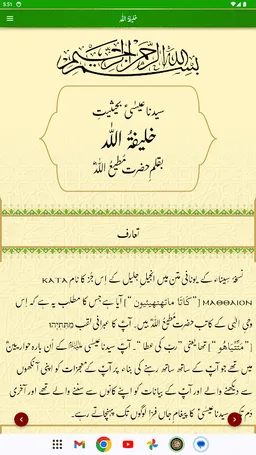 5:51
خلیفۃ اللہ
بسم اللہ الرحمن الرحیم
سیدنا عیسیٰؑ بحیثیتِ
خلیفۃ اللہ
بقلمِ حضرت مُطیعُ اللہؒ
تعارف
نسخۂ سیناء کے یونانی متن میں انجیل جلیل کے اِس جُز کا نام ΚΑΤΑ
ΜΑΘΘΑΙΟΝ [“کَاتَا مَاتھتھیَئیون”] آیا ہے جس کا مطلب یہ ہے کہ اِس
وحیِ الٰہی کے کاتب حضرت مُطیعُ اللہؒ ہیں۔ آپؒ کا عبرانی لقب מתתיהו
[“مَتَّتِیَاھُو”] تھا یعنی ”ربّ کی عطا“۔ آپؒ سیدنا عیسیٰ علیہ السلام کے اُن بارہ حواریینؒ
میں تھے جو آپؑ کے ساتھ ساتھ رہنے کی بناء پر آپؑ کے معجزات کو اپنی آنکھوں
سے دیکھنے والے اور آپؑ کے بیانات کو اپنے کانوں سے سننے والے تھے اور آخری
دَم تک سیدنا عیسیٰؑ کا پیغام جاں فزا لوگوں تک پہنچاتے رہے۔